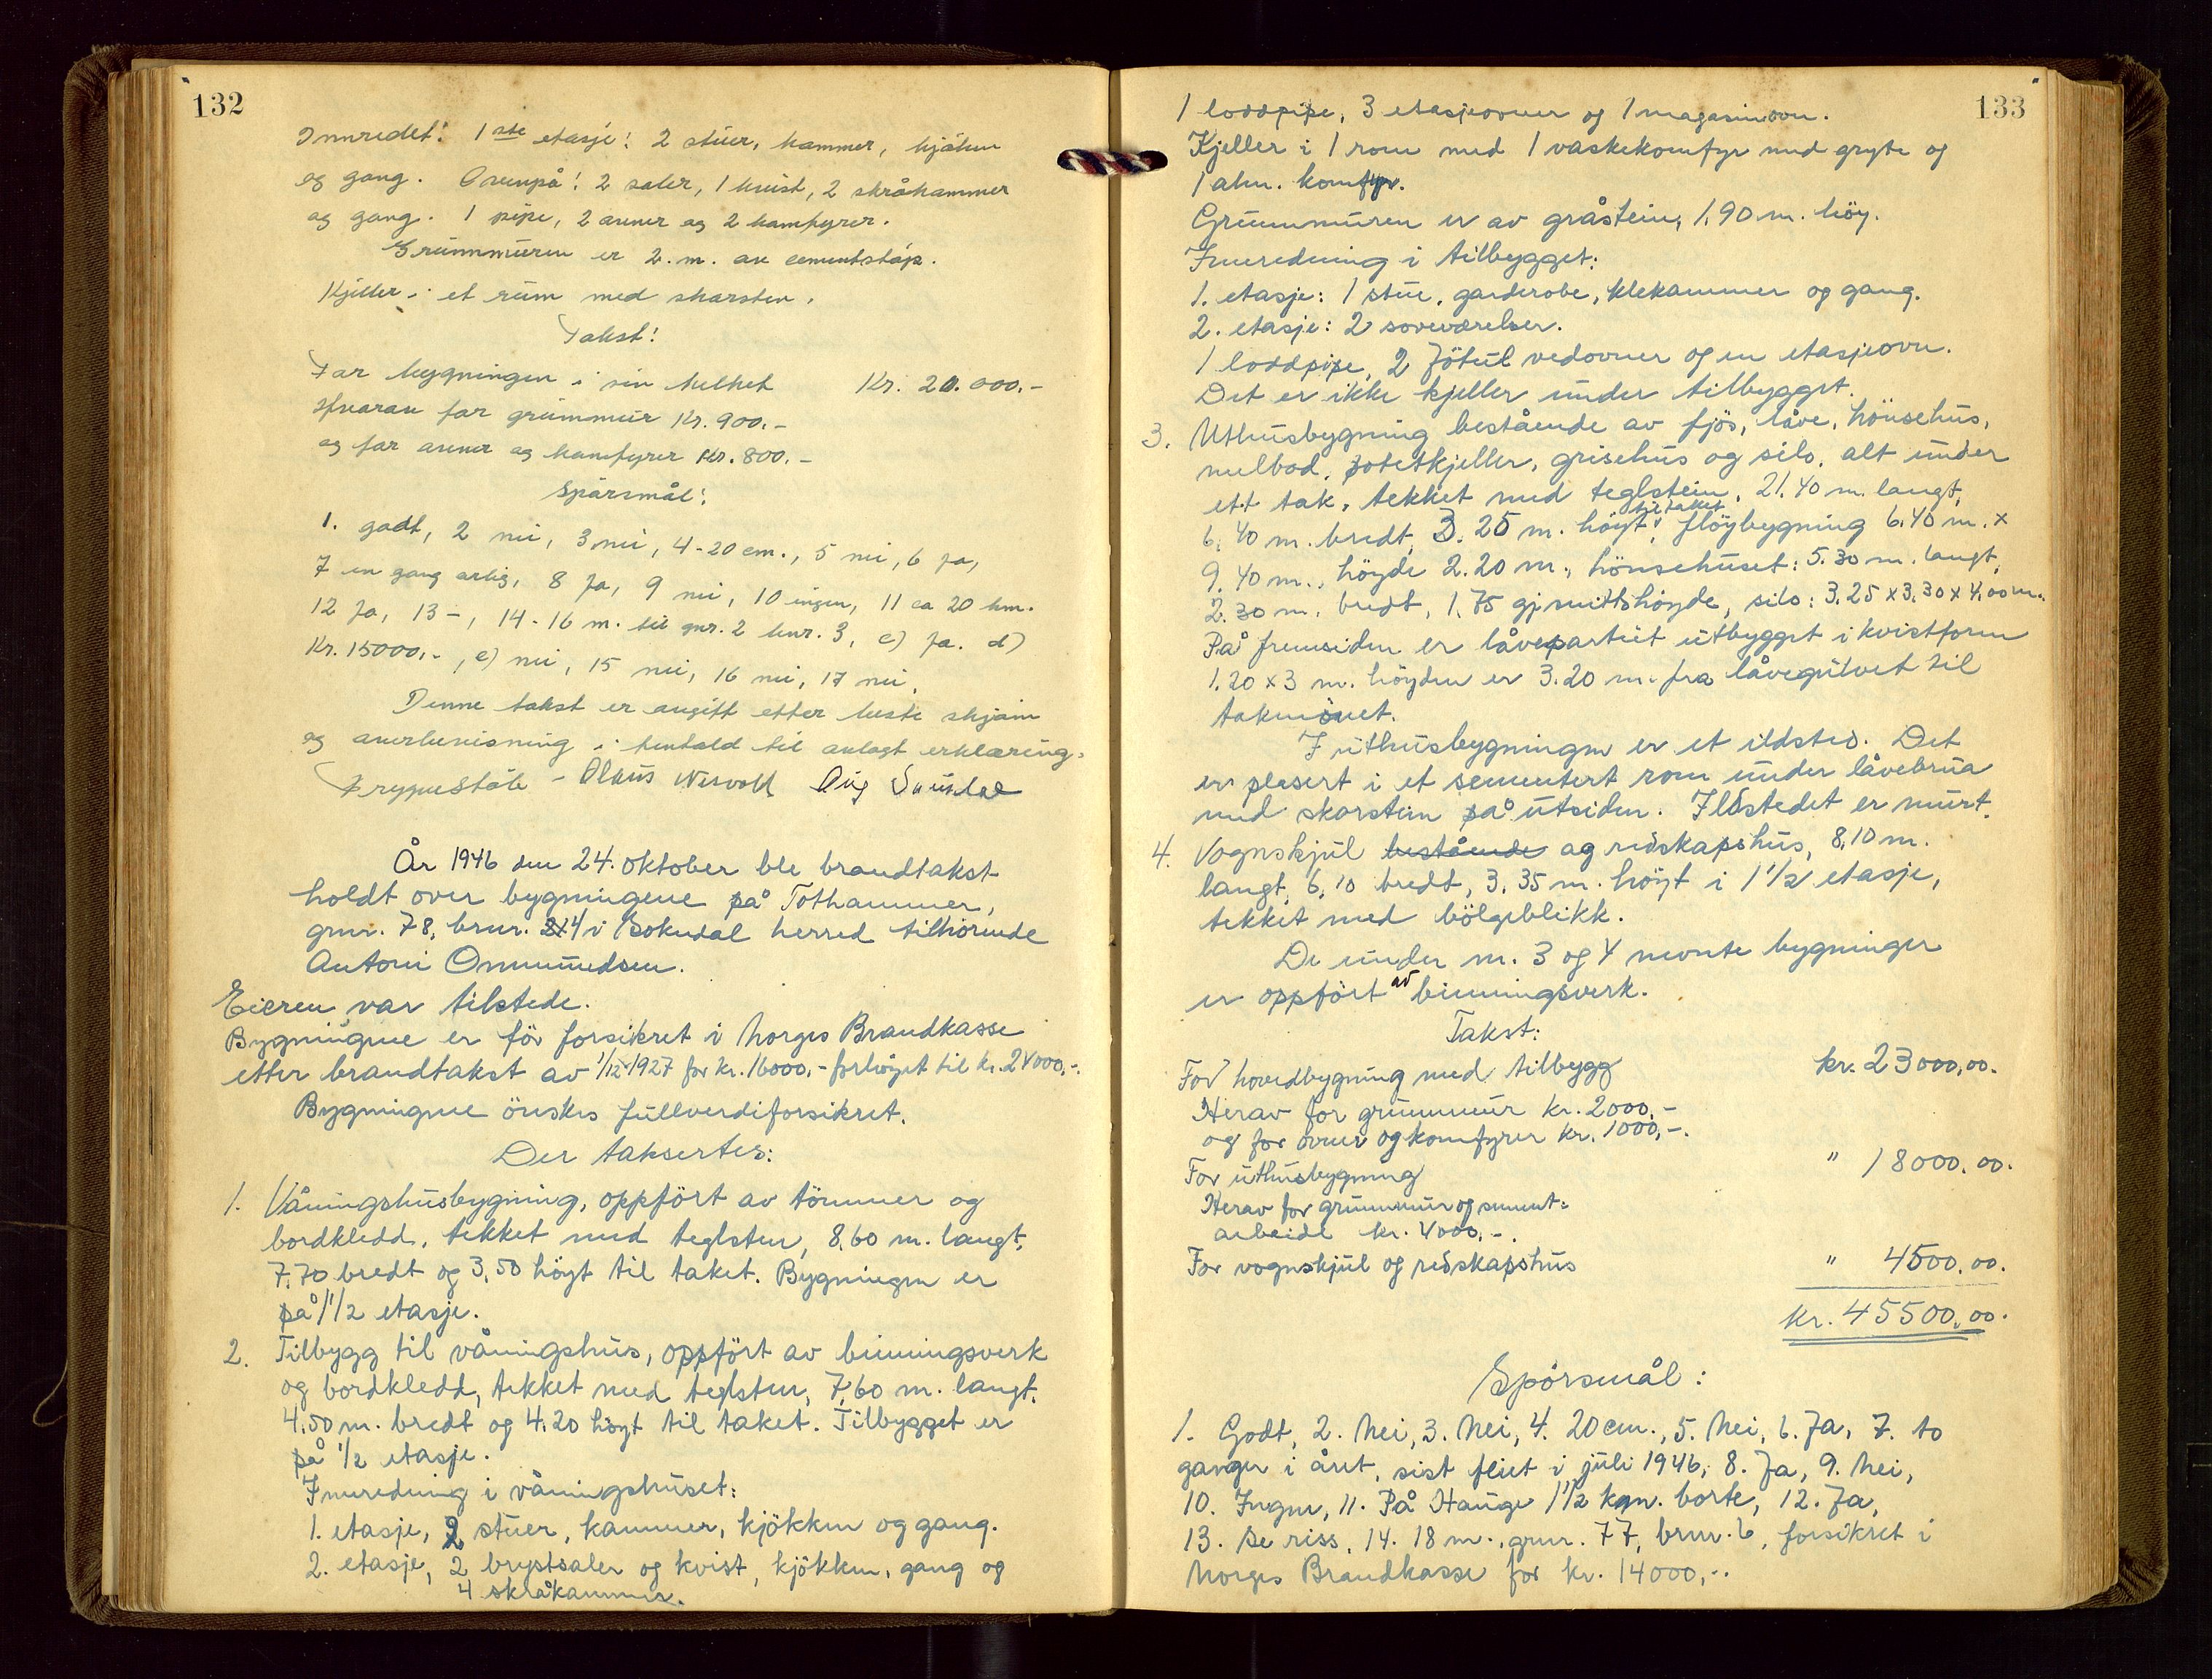 132
Innredet: 1ste etasje: 2 stuer, kammer, kjöken
og gang. Ovenpå: 2 saler, 1 kvist, 2 skråkammer
og gang. 1 pipe, 2 ovner og 2 komfyrer.
Grunnmuren er 2. m. av cementstöp.
Kjeller i et rum med skorsten.
Takst:
For bygningen i sin helhet Kr. 20.000.-
Hvorav for grunnmur Kr. 900.-
og for ovner og komfyrer Kr. 800.-
Spörsmål:
1. godt, 2 nei, 3 nei, 4-20 cm., 5 nei, 6 ja,
7 en gang årlig, 8 ja, 9 nei, 10 ingen, 11 ca 20 km.
12 ja, 13 -, 14 - 16 m. til gnr. 2 bnr. 3, c) ja. d)
Kr. 15000.-, e) nei, 15 nei, 16 nei, 17 nei.
Denne takst er avgitt etter beste skjön
og overbevisning i henhold til avlagt erklæring.
År 1946 den 24. oktober ble brandtakst
holdt over bygningene på Tothammer,
gnr. 78, bnr. 4 i Sokndal herred tilhörende
Antoni Ommundsen.
Eieren var tilstede.
Bygningene er för forsikret i Norges Brandkasse
etter brandtakst av 1/12-1927 for kr. 16000,- forhöyet til kr. 24000,-.
Bygningene önskes fullverdiforsikret.
Der taksertes:
1. Våningshusbygning, oppfört av tömmer og
bordkledd, tekket med teglsten, 8,60 m. langt,
7,70 bredt og 3,50 höyt til taket. Bygningen er
på 1 1/2 etasje.
2. Tilbygg til våningshus, oppfört av binningsverk
og bordkledd, tekket med teglsten, 7,60 m. langt,
4,50 m. bredt og 4,20 höyt til taket. Tilbygget er
på 1/2 etasje.
Innredning i våningshuset:
1. etasje, 2 stuer, kammer, kjökken og gang.
2. etasje, 2 brystsaler og kvist, kjökken, gang og
4 skråkammer.
133
1 loddpipe, 3 etasjeovner og 1 magasinovn.
Kjeller i 1 rom med 1 vaskekomfyr med gryte og
1 alm. komfyr.
Grunnmuren er av gråstein, 1,90 m. höy.
Innredning i tilbygget:
1. etasje: 1 stue, garderobe, klekammer og gang.
2. etasje: 2 soveværelser.
1 loddpipe, 2 Jötul vedovner og en etasjeovn.
Det er ikke kjeller under tilbygget.
3. Uthusbygning bestående av fjös, låve, hönsehus,
melbod, potetkjeller, grisehus og silo, alt under
ett tak, tekket med teglstein, 21,40 m. langt,
6,40 m. bredt, 3.25 m. höyt til taket, flöybygning 6,40 m. x
9,40 m., höyde 2.20 m., hönsehuset: 5.30 m. langt,
2.30 m. bredt, 1,75 gj.snittshöyde, silo: 3.25 x 3.30 x 4,00 m.
På fremsiden er låvepartiet utbygget i kvistform
1.20 x 3 m. höyden er 3.20 m. fra låvegulvet til
takmönet.
I uthusbygningen er et ildsted. Det
er plasert i et sementert rom under låvebrua
med skorstein på utsiden. Ildstedet er murt.
4. Vognskjul bestående og redskapshus, 8,10 m.
langt, 6,10 bredt, 3,35 m. höyt i 1 1/2 etasje,
tekket med bölgeblikk.
De under nr. 3 og 4 nevnte bygninger
er oppfört av binningsverk.
Takst:
For hovedbygning med tilbygg kr. 23000,00.
Herav for grunnmur kr. 2000,-
og for ovner og komfyrer kr. 1000,-.
For uthusbygning " 18000.00.
Herav for grunnmur og sement=
arbeide kr. 4000.-.
For vognskjul og redskapshus " 4500.00.
kr. 45500,00.
Spörsmål:
1. Godt, 2. Nei, 3. Nei, 4. 20 cm., 5. Nei, 6. Ja, 7. to
ganger i året, sist feiet i juli 1946, 8. Ja, 9. Nei,
10. Ingen, 11. På Hauge 1 1/2 km. borte, 12. Ja,
13. Se riss, 14. 18 m., gnr. 77, bnr. 6, forsikret i
Norges Brandkasse for kr. 14000,-.